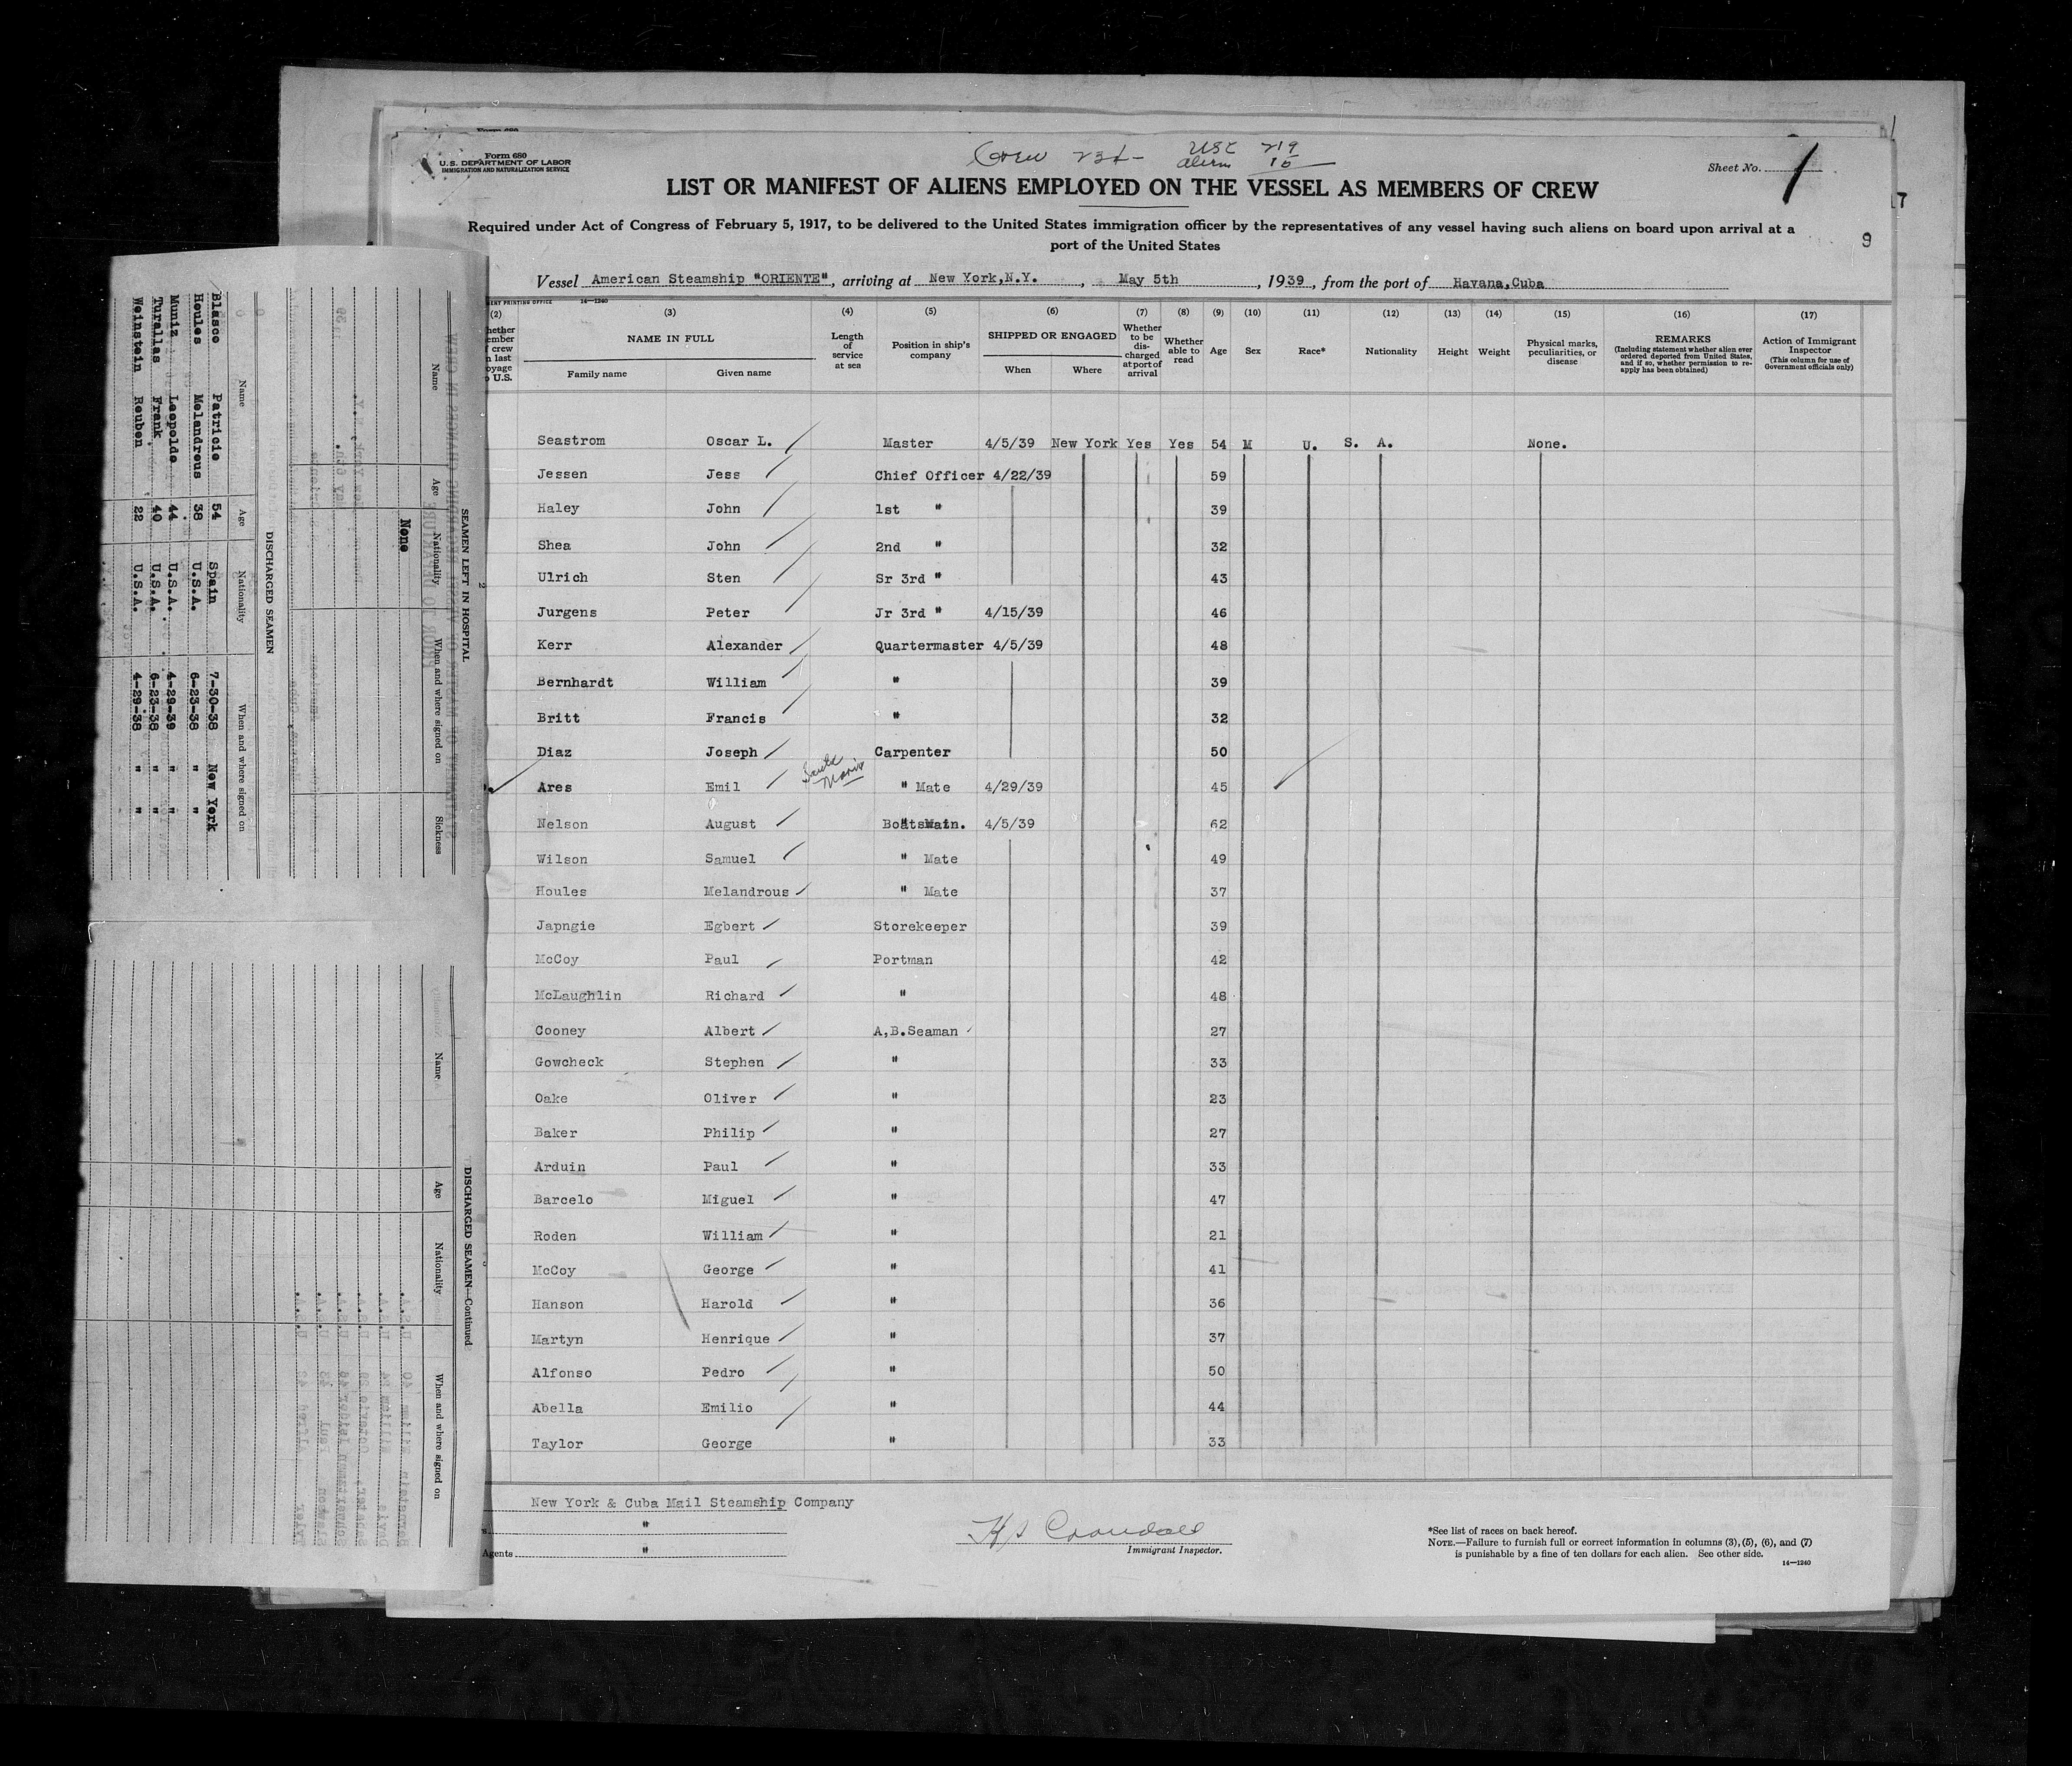 Form 680
U.S. DEPARTMENT OF LABOR
IMMIGRATION AND NATURALIZATION SERVICE
Crew 234- USC 219
alien 15
Sheet No. 1
LIST OR MANIFEST OF ALIENS EMPLOYED ON THE VESSEL AS MEMBERS OF CREW
Required under Act of Congress of February 5, 1917, to be delivered to the United States immigration officer by the representatives of any vessel having such aliens on board upon arrival at a
port of the United States
9
Vessel American Steamship "ORIENTE", arriving at New York,N.Y. , May 5th , 1939, from the port of Havana,Cuba
14—1240
(2) (3) (4) (5) (6) (7) (8) (9) (10) (11) (12) (13) (14) (15) (16) (17)
NAME IN FULL
Family name Given name
Length of service at sea
Position in ship's company
SHIPPED OR ENGAGED
When Where
Whether to be discharged at port of arrival
Whether able to read
Age Sex Race* Nationality Height Weight
Physical marks, peculiarities, or disease
REMARKS
(Including statement whether alien ever ordered deported from United States, and if so, whether permission to reapply has been obtained)
Action of Immigrant Inspector
(This column for use of Government officials only)
Seastrom Oscar L. Master 4/5/39 New York Yes Yes 54 M U. S. A. None.
Jessen Jess Chief Officer 4/22/39 59
Haley John 1st " 39
Shea John 2nd " 32
Ulrich Sten Sr 3rd " 43
Jurgens Peter Jr 3rd " 4/15/39 46
Kerr Alexander Quartermaster 4/5/39 48
Bernhardt William " 39
Britt Francis " 32
Diaz Joseph Carpenter 50
Ares Emil " Mate 4/29/39 45
Nelson August Boatswain. 4/5/39 62
Wilson Samuel " Mate 49
Houles Melandrous " Mate 37
Japngie Egbert Storekeeper 39
McCoy Paul Portman 42
McLaughlin Richard " 48
Cooney Albert A,B.Seaman 27
Gowcheck Stephen " 33
Oake Oliver " 23
Baker Philip " 27
Arduin Paul " 33
Barcelo Miguel " 47
Roden William " 21
McCoy George " 41
Hanson Harold " 36
Martyn Henrique " 37
Alfonso Pedro " 50
Abella Emilio " 44
Taylor George " 33
New York & Cuba Mail Steamship Company
"
Agents "
Immigrant Inspector.
*See list of races on back hereof.
NOTE.—Failure to furnish full or correct information in columns (3), (5), (6), and (7)
is punishable by a fine of ten dollars for each alien. See other side.
14—1240
SEAMEN LEFT IN HOSPITAL
Name Age Nationality When and where signed on Sickness
None
DISCHARGED SEAMEN
Name Age Nationality When and where signed on
Blasco Patricio 54 Spain 7-30-38 New York
Houles Melandrous 38 U.S.A. 6-23-38 " "
Muniz Leopolde 44 U.S.A. 4-29-39 " "
Turallas Frank 40 U.S.A. 6-23-38 " "
Weinstein Reuben 22 U.S.A. 4-29-38 " "
DISCHARGED SEAMEN—Continued
Name Age Nationality When and where signed on